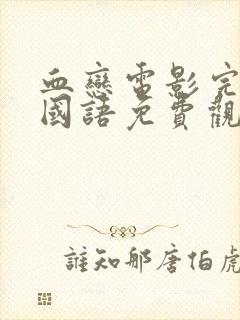 血戀電影完
國語免費觀
誰知那唐伯虎